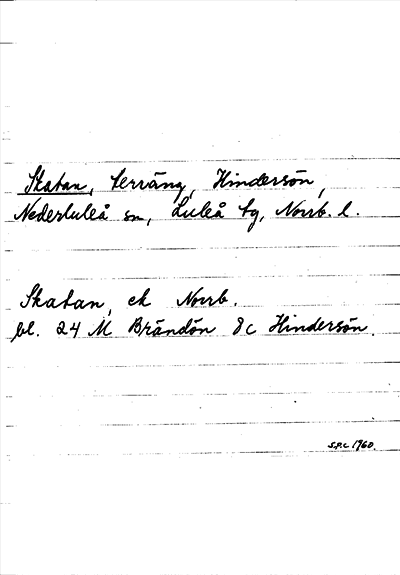 Skatan, terräng, Hindersön,
Nederluleå sn, Luleå tg, Norrb. l.
Skatan, ek Norrb.
bl. 24 M Brändön 8c Hindersön.
S.P.C 1960.